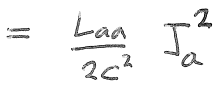 = \frac{L_{aa}}{2c^2} J_a^2